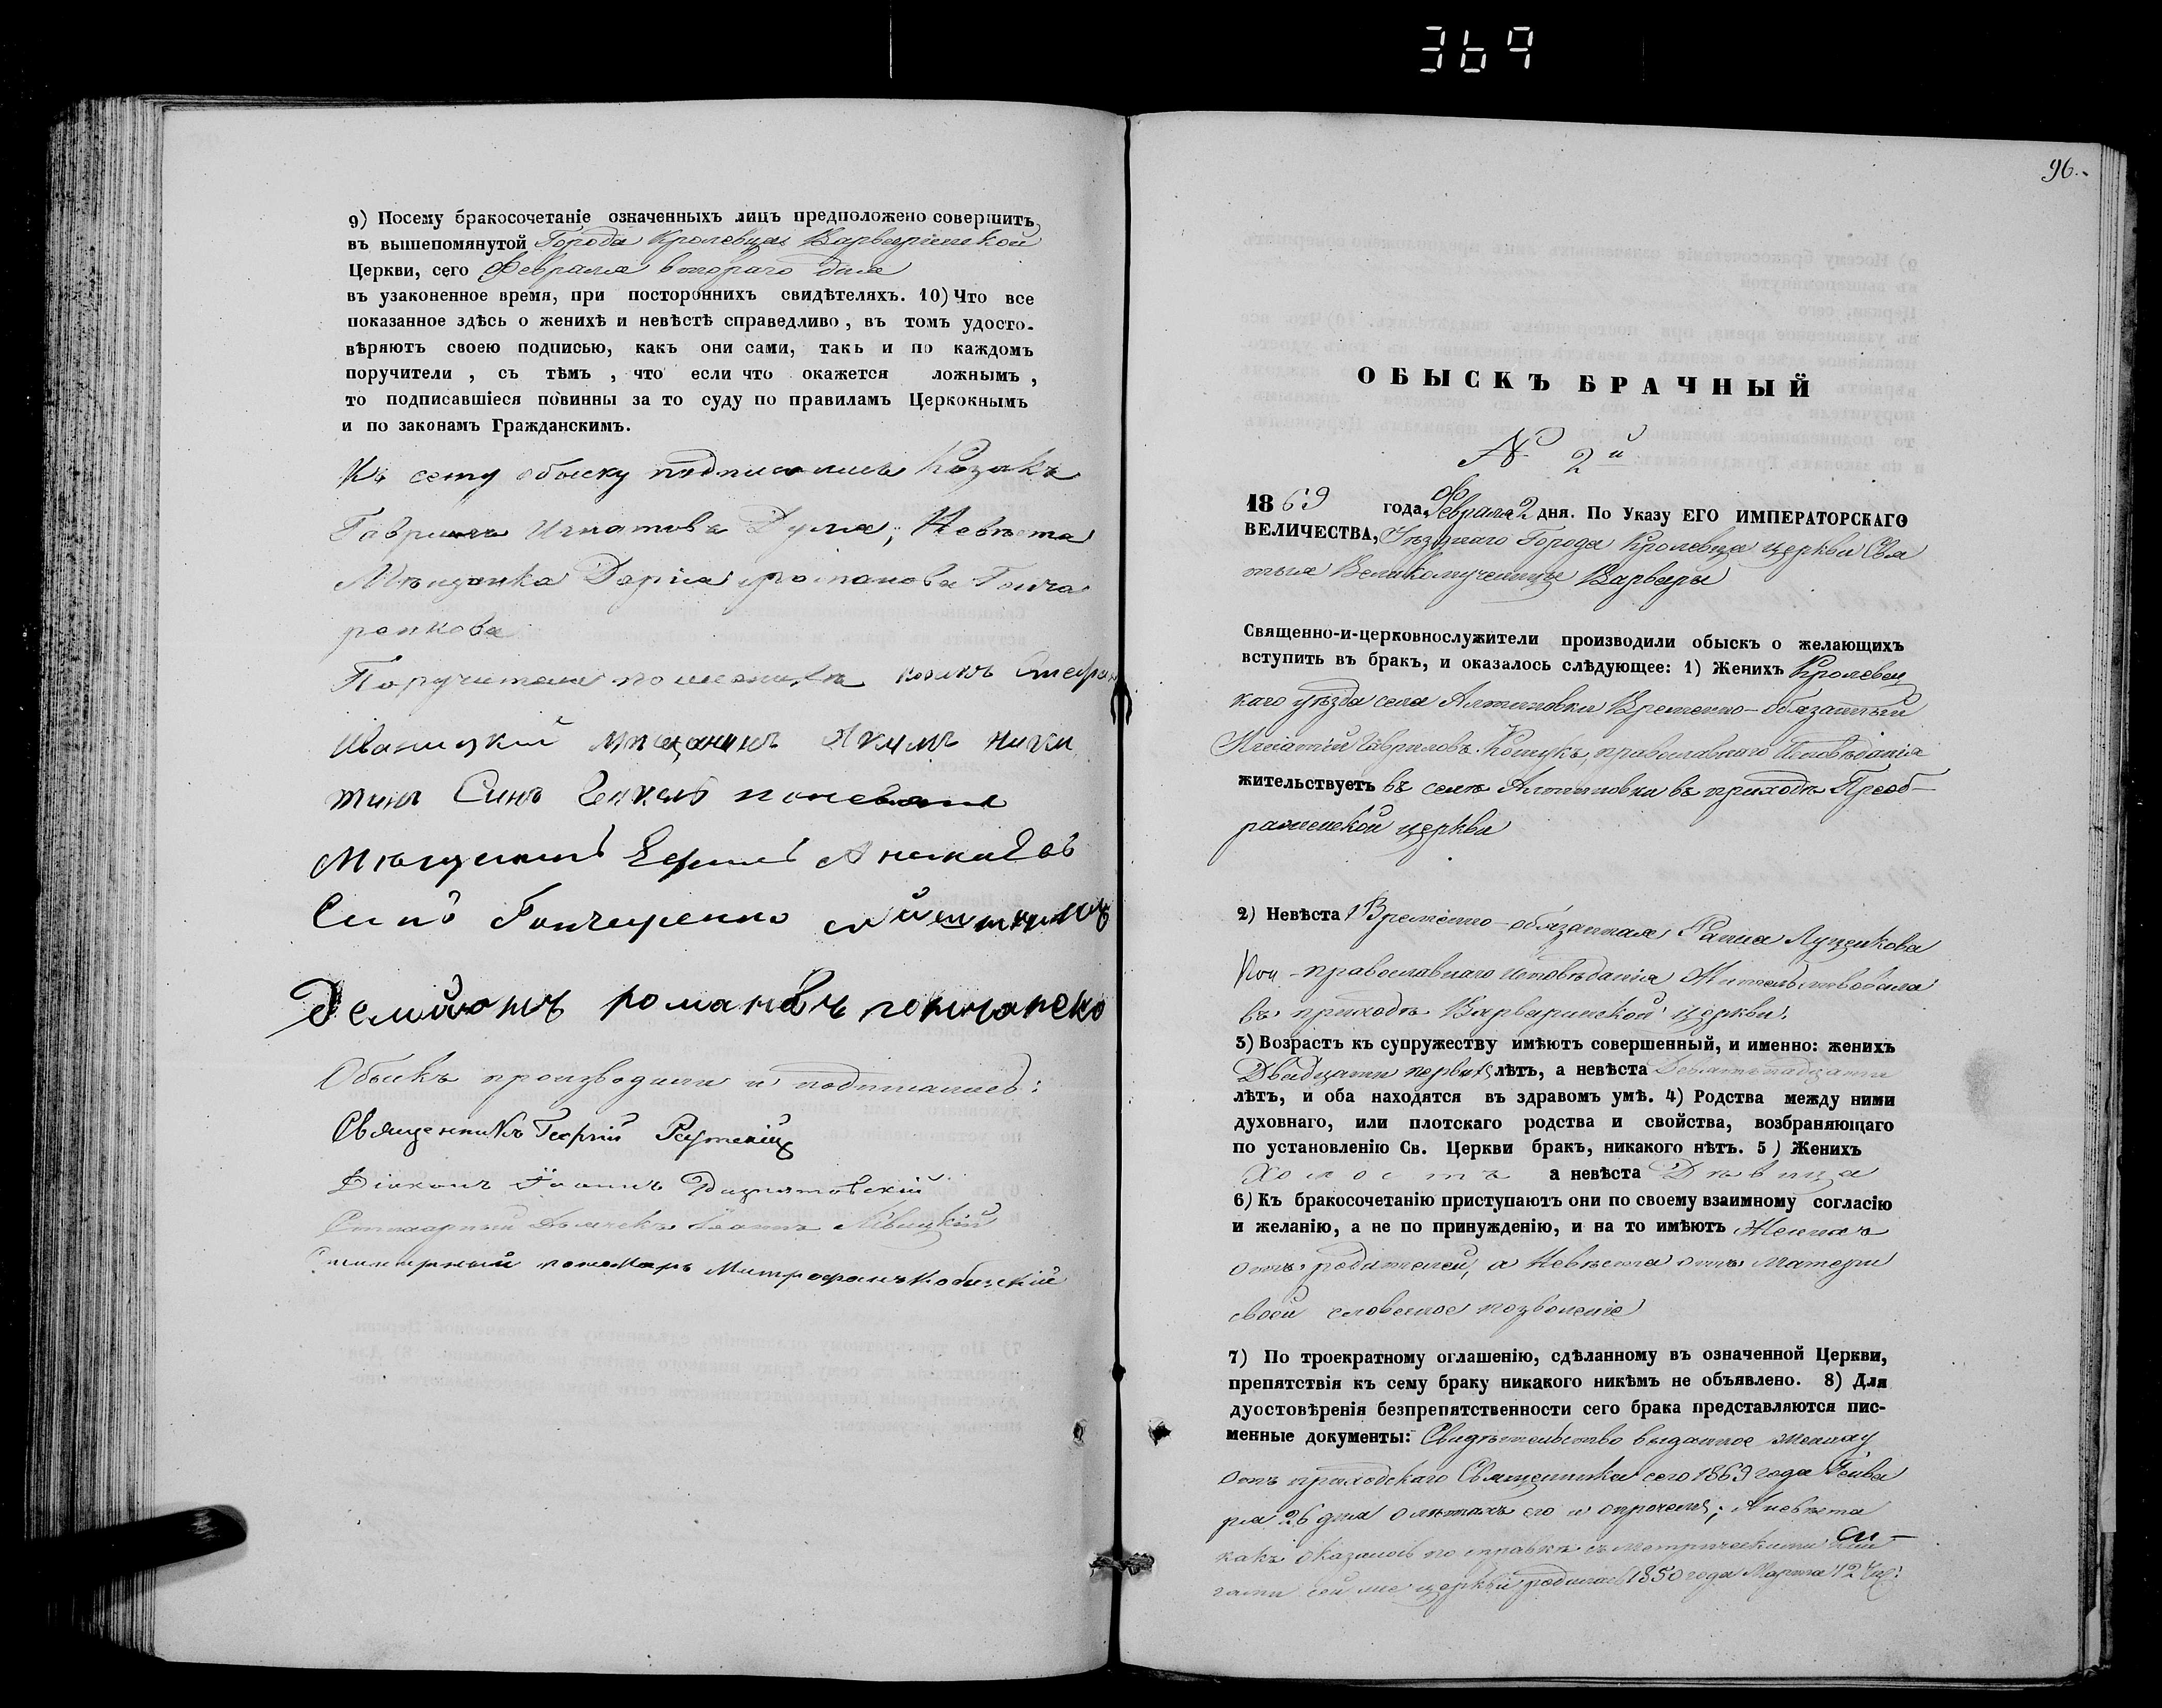 369
9) Посему бракосочетаніе означенныхъ лицъ предположено совершить
въ вышепомянутой Города Кролевца Варваринской
Церкви, сего Февраля втораго дня
въ узаконенное время, при постороннихъ свидѣтеляхъ. 10) Что все
показанное здѣсь о женихѣ и невѣстѣ справедливо, въ томъ удосто-
вѣряютъ своею подписью, какъ они сами, такъ и по каждомъ
поручители, съ тѣмъ, что если что окажется ложнымъ,
то подписавшіеся повинны за то суду по правиламъ Церкокнымъ
и по законамъ Гражданскимъ.
Къ сему обыску подписались Козакъ
Гавриилъ Игнатовъ Дума, Невѣста
Мѣщанка Дарія Гонча
ренкова
Поручители по женихѣ козакъ Стефан
Иваницкій мѣщанинъ Якимъ Ники
тинъ Синъ
Ефимъ
Синъ Гончаренко
романовъ гончаренко
Обыскъ производили и подписались:
Священникъ Георгій
Діаконъ Іоаннъ
Іоаннъ Левицкій
пономарь Митрофанъ
96.
ОБЫСКЪ БРАЧНЫЙ
№ 2й
1869 года, Февраля 2 дня. По Указу ЕГО ИМПЕРАТОРСКАГО
ВЕЛИЧЕСТВА, Уѣзднаго Города Кролевца церкви Свя
тыя Великомученицы Варвары
Священно-и-церковнослужители производили обыскъ о желающихъ
вступить въ бракъ, и оказалось слѣдующее: 1) Женихъ Кролевец
каго уѣзда села Алтыновки Временно-обязанный
Игнатій Гавриловъ Кошукъ, православнаго Исповѣданія
жительствуетъ въ селѣ Алтыновки въ приходѣ Преоб-
раженской церкви
2) Невѣста Временно-обязанная Луценкова
православнаго исповѣданія Жительствовала
въ приходѣ Варваринской церкви.
3) Возрастъ къ супружеству имѣютъ совершенный, и именно: женихъ
Двадцати первыхъ лѣтъ, а невѣста Девятнадцати
лѣтъ, и оба находятся въ здравомъ умѣ. 4) Родства между ними
духовнаго, или плотскаго родства и свойства, возбраняющаго
по установленію Св. Церкви бракъ, никакого нѣтъ. 5) Женихъ
Холостъ а невѣста Дѣвица
6) Къ бракосочетанію приступаютъ они по своему взаимному согласію
и желанію, а не по принужденію, и на то имѣютъ Женихъ
отъ родителей, а Невѣста отъ Матери
своей словесное позволеніе
7) По троекратному оглашенію, сдѣланному въ означенной Церкви,
препятствія къ сему браку никакого никѣмъ не объявлено. 8) Для
дуостовѣренія безпрепятственности сего брака представляются пис-
менные документы: Свидѣтельство выданное жениху
отъ приходскаго Священника сего 1869 года Генва
ря 26 дня о лѣтахъ его и опрочемъ; А невѣста
какъ оказалось по справкѣ съ метрическими кни
гами сей же церкви родилась 1850 года Марта 12 чис: